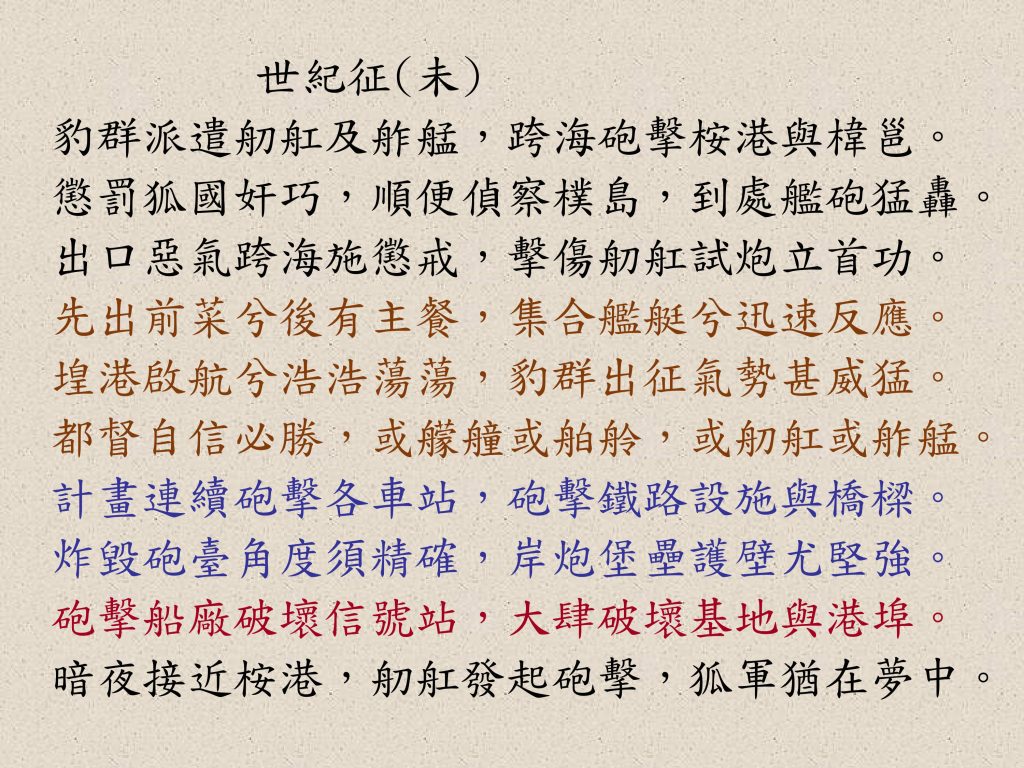 世紀征(未)
豹群派遣舠舡及舴艋，跨海砲擊桉港與椲邕。
懲罰狐國奸巧，順便偵察樸島，到處艦砲猛轟。
出口惡氣跨海施懲戒，擊傷舠舡試炮立首功。
先出前菜兮後有主餐，集合艦艇兮迅速反應。
堭港啟航兮浩浩蕩蕩，豹群出征氣勢甚威猛。
都督自信必勝，或艨艟或舶舲，或舠舡或舴艋。
計畫連續砲擊各車站，砲擊鐵路設施與橋樑。
炸毀砲臺角度須精確，岸炮堡壘護壁尤堅強。
砲擊船廠破壞信號站，大肆破壞基地與港埠。
暗夜接近桉港，舠舡發起砲擊，狐軍猶在夢中。